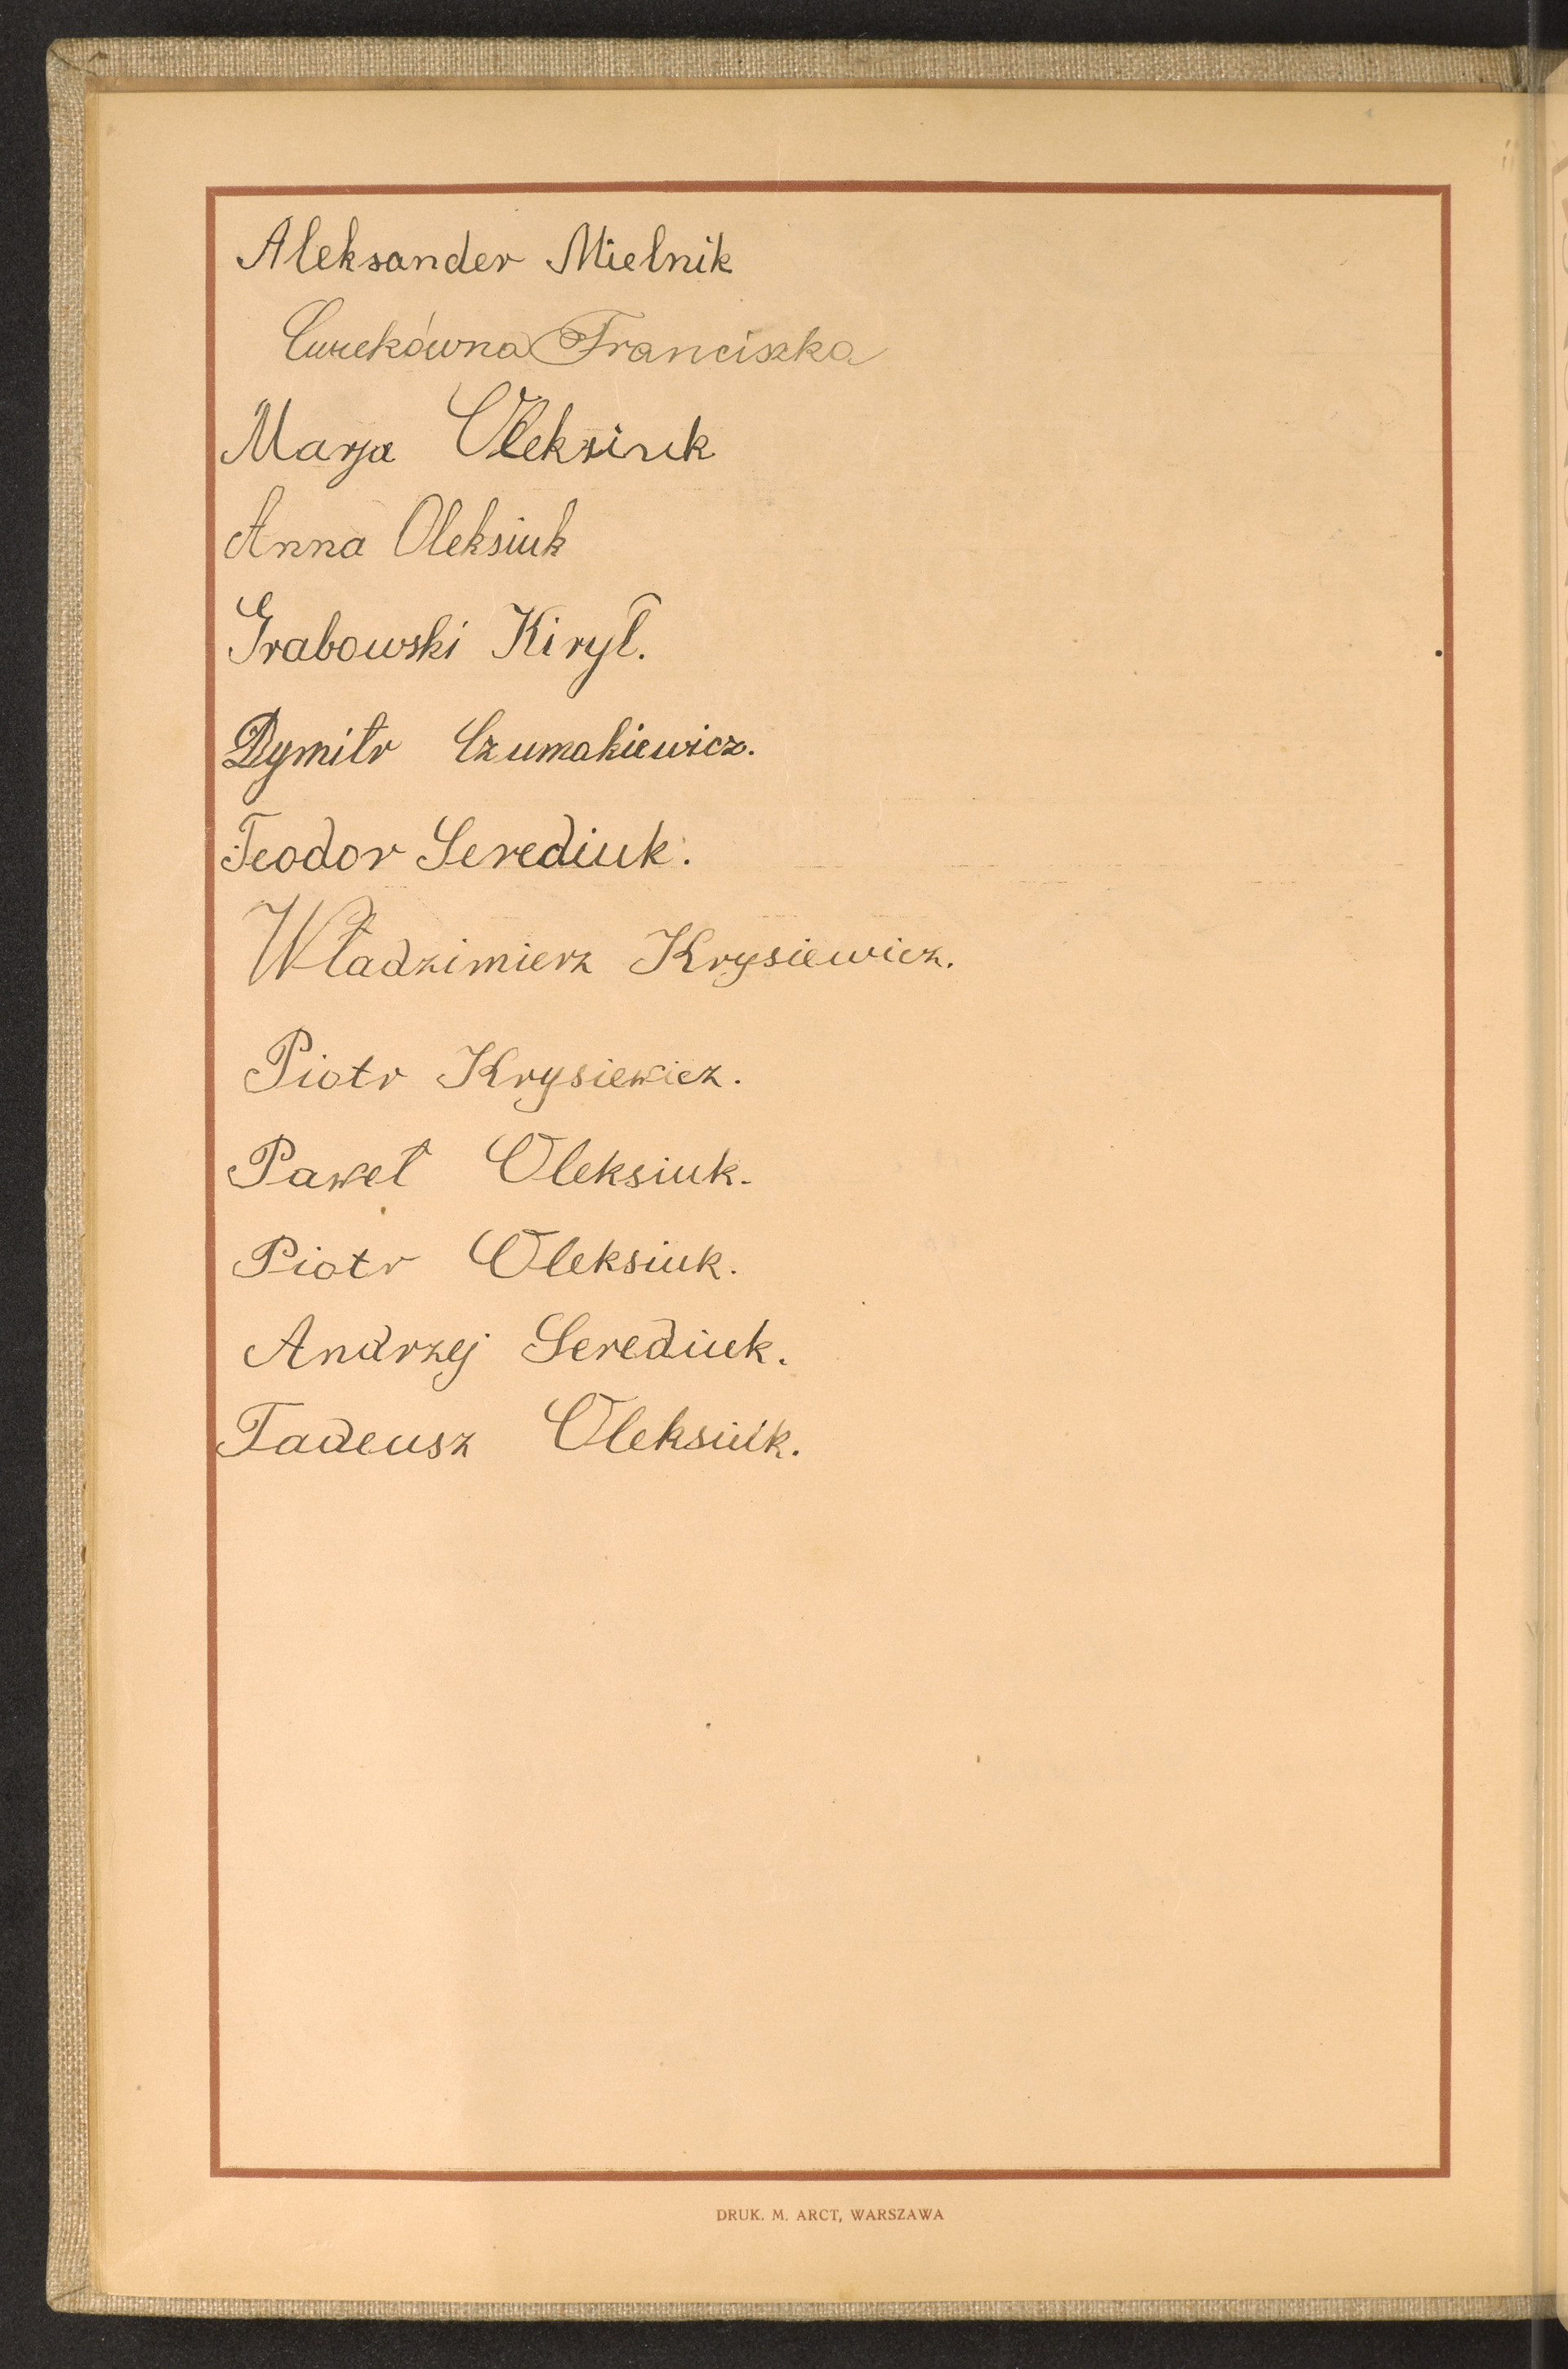 Aleksander Mielnik
Franciszka
Marja Oleksiuk
Anna Oleksiuk
Grabowski Kirył.
Dymitr Czumakiewicz.
Teodor Serediuk.
Władzimierz Krysiewicz.
Piotr Krysiewicz.
Paweł Oleksiuk.
Piotr Oleksiuk.
Andrzej Serediuk.
Tadeusz Oleksiuk.
DRUK. M. ARCT, WARSZAWA